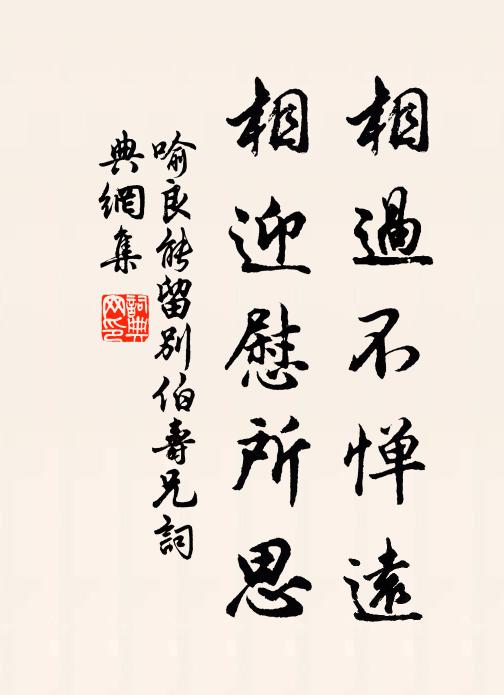 相過不惮遠
相迎慰所思
喻良能留別伯壽兄詞
典網集
詞典網印